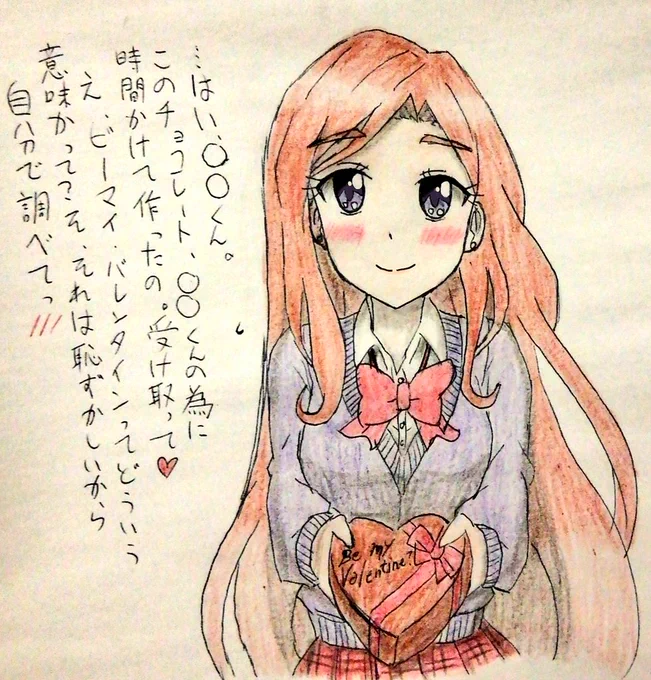 …はい、○○くん。
このチョコレート、○○くんの為に
時間かけて作ったの。受け取って♥
え、ビーマイ・バレンタインってどういう
意味かって？そ、それは恥ずかしいから
自分で調べてっ///
Be my
Valentine?